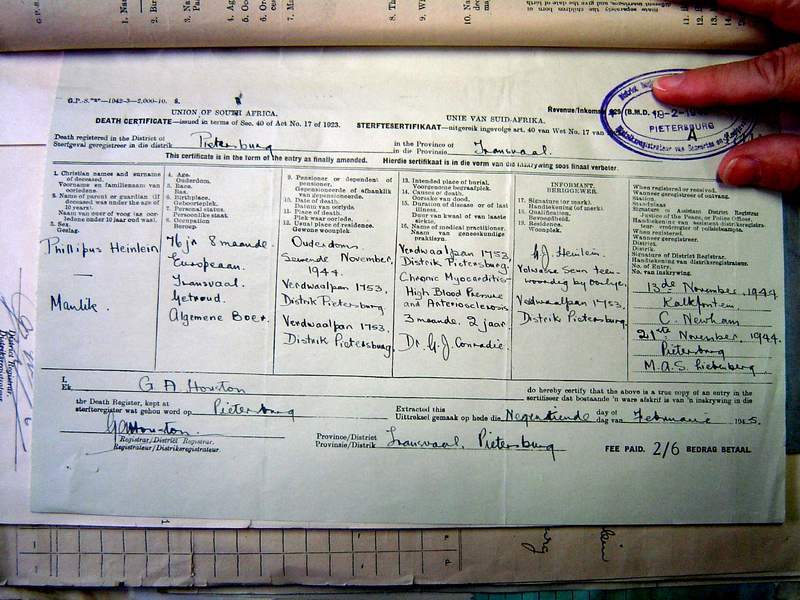 G.P.-S. 1942-3—2,000-10. S.
Revenue/Inkomste
(B.M.D.
19-2-
PIETERSBURG
A
UNION OF SOUTH AFRICA.
UNIE VAN SUID-AFRIKA.
DEATH CERTIFICATE—issued in terms of Sec. 40 of Act No. 17 of 1923.
STERFTESERTIFIKAAT—uitgereik ingevolge art. 40 van Wet No. 17 van
Death registered in the District of
Sterfgeval geregistreer in die distrik Pietersburg
in the Province of
in die Provinsie Transvaal.
This certificate is in the form of the entry as finally amended. Hierdie sertifikaat is in die vorm van die inskrywing soos finaal verbeter.
1. Christian names and surname of deceased.
Voorname en familienaam van oorledene.
5. Name of parent or guardian (if deceased was under the age of 10 years).
Naam van ouer of voog (as oorledene onder 10 jaar oud was).
3. Sex.
Geslag.
Phillipus Heinlein
—
Manlik.
4. Age.
Ouderdom.
5. Race.
Ras.
6. Birthplace.
Geboorteplek.
7. Personal status.
Persoonlike staat.
8. Occupation.
Beroep.
76 jr 8 maande.
Europeaan.
Transvaal.
Getroud.
Algemene Boer.
9. Pensioner or dependent of pensioner.
Gepensioneerde of afhanklik van gepensioneerde.
10. Date of death.
Datum van oorlyde.
11. Place of death.
Plek waar oorlede.
12. Usual place of residence.
Gewone woonplek.
Ouderdoms.
Sewende November,
1944.
Verdwaalpan 1753,
Distrik Pietersburg
Verdwaalpan 1753.
Distrik Pietersburg
13. Intended place of burial.
Voorgenome begraafplek.
14. Causes of death.
Oorsake van dood.
15. Duration of disease or of last illness.
Duur van kwaal of van laaste siekte.
16. Name of medical practitioner.
Naam van geneeskundige praktisyn.
Verdwaalpan 1753,
Distrik Pietersburg.
Chronic Myocarditis
High Blood Pressure
and Arteriosclerosis
3 maande. 2 jaar.
Dr. G.J. Conradie.
INFORMANT.
BERIGGEWER.
17. Signature (or mark).
Handtekening (of merk).
18. Qualification.
Bevoegdheid.
19. Residence.
Woonplek.
G.J. Heinlein.
Volwasse Seun teen-
woordig by oorlye.
Verdwaalpan 1753,
Distrik Pietersburg.
When registered or received.
Wanneer geregistreer of ontvang.
Station.
Standplaas.
Signature of Assistant District Registrar
When registered.
Wanneer geregistreer.
District.
Distrik.
Signature of District Registrar.
Handtekening van distriksregistrateur.
No. of Entry.
No. van inskrywing.
13de November, 1944
Kalkfontein.
C. Newham
21ste November, 1944.
Pietersburg
I,
Ek G. A. Houston
do hereby certify that the above is a true copy of an entry in the
sertifiseer dat bostaande 'n ware afskrif is van 'n inskrywing in die
the Death Register, kept at
sterfteregister wat gehou word op Pietersburg
Extracted this
Uittreksel gemaak op hede die Negentiende day of
dag van Februarie 19 5.
GAHouston.
Registrar/District Registrar.
Registrateur/Distriksregistrateur
Province/District
Provinsie/Distrik Transvaal, Pietersburg
FEE PAID. 2/6 BEDRAG BETAAL.